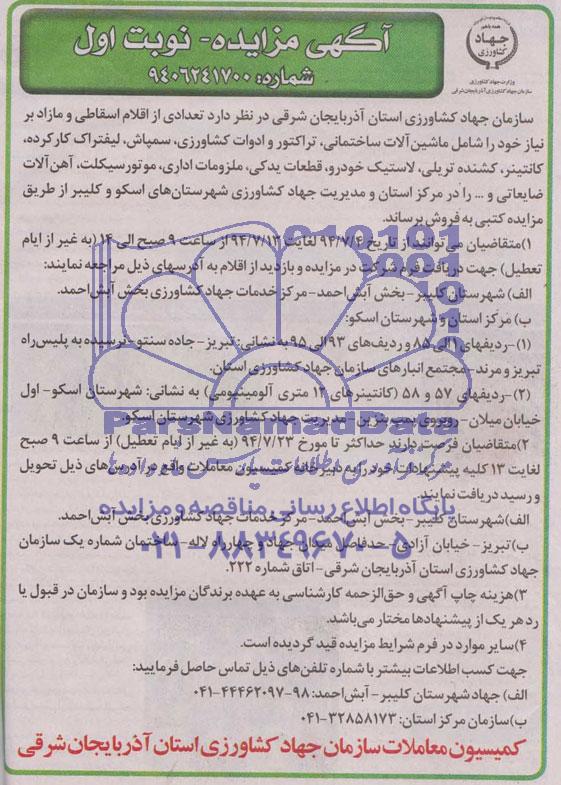 آگهی مزایده- نوبت اول
شماره: ۹۴۰۶۲۴۱۷۰۰
همه با هم
جهاد
کشاورزی
وزارت جهاد کشاورزی
سازمان جهاد کشاورزی آذربایجان شرقی
سازمان جهاد کشاورزی استان آذربایجان شرقی در نظر دارد تعدادی از اقلام اسقاطی و مازاد بر
نیاز خود را شامل ماشین آلات ساختمانی، تراکتور و ادوات کشاورزی، سمپاش، لیفتراک کارکرده،
کانتینر، کشنده تریلی، لاستیک خودرو، قطعات یدکی، ملزومات اداری، موتورسیکلت، آهن آلات
ضایعاتی و ... را در مرکز استان و مدیریت جهاد کشاورزی شهرستان‌های اسکو و کلیبر از طریق
مزایده کتبی به فروش برساند.
۱)متقاضیان می‌توانند از تاریخ ۹۴/۷/۴ لغایت ۹۴/۷/۱۳ از ساعت ۹ صبح الی ۱۴ (به غیر از ایام
تعطیل) جهت دریافت فرم شرکت در مزایده و بازدید از اقلام به آدرسهای ذیل مراجعه نمایند:
الف) شهرستان کلیبر- بخش آبش‌احمد- مرکز خدمات جهاد کشاورزی بخش آبش‌احمد.
ب) مرکز استان و شهرستان اسکو:
(۱)-ردیفهای ۱ الی ۸۵ و ردیف‌های ۹۳ الی ۹۵ به نشانی: تبریز- جاده سنتو- نرسیده به پلیس راه
تبریز و مرند- مجتمع انبارهای سازمان جهاد کشاورزی استان.
(۲)-ردیفهای ۵۷ و ۵۸ (کانتینرهای ۱۲ متری آلومینیومی) به نشانی: شهرستان اسکو- اول
خیابان میلان- روبروی پمپ بنزین- مدیریت جهاد کشاورزی شهرستان اسکو.
۲)متقاضیان فرصت دارند حداکثر تا مورخ ۹۴/۷/۲۳ (به غیر از ایام تعطیل) از ساعت ۹ صبح
لغایت ۱۳ کلیه پیشنهادات خود را به دبیرخانه کمیسیون معاملات واقع در آدرس‌های ذیل تحویل
و رسید دریافت نمایند.
الف)شهرستان کلیبر- بخش آبش‌احمد- مرکز خدمات جهاد کشاورزی بخش آبش‌احمد.
ب)تبریز- خیابان آزادی- حدفاصل میدان جهاد و چهارراه لاله- ساختمان شماره یک سازمان
جهاد کشاورزی استان آذربایجان شرقی- اتاق شماره ۲۲۲.
۳)هزینه چاپ آگهی و حق‌الزحمه کارشناسی به عهده برندگان مزایده بود و سازمان در قبول یا
رد هر یک از پیشنهادها مختار می‌باشد.
۴)سایر موارد در فرم شرایط مزایده قید گردیده است.
جهت کسب اطلاعات بیشتر با شماره تلفن‌های ذیل تماس حاصل فرمایید:
الف) جهاد شهرستان کلیبر- آبش‌احمد: ۹۸-۴۴۴۶۲۰۹۷-۰۴۱
ب)سازمان مرکز استان: ۳۲۸۵۸۱۷۳-۰۴۱
کمیسیون معاملات سازمان جهاد کشاورزی استان آذربایجان شرقی
ParsNamadData
پایگاه اطلاع رسانی مناقصه و مزایده
۰۲۱-۸۸۳۴۹۶۷۰-۵